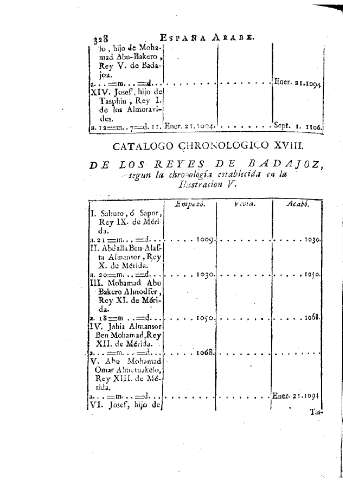 328 ESPAÑA ARABE.
lo, hijo de Moha-
mad Abu-Bakero,
Rey V. de Bada-
joz.
a. =m. =d. Ener. 21.1094.
XIV. Josef, hijo de
Tasphin, Rey I.
de los Almoravi-
des.
a. 12=m. 7=d. 11. Ener. 21.1094. Sept. 1. 1106.
CATALOGO CHRONOLOGICO XVIII.
DE LOS REYES DE BADAJOZ,
segun la chronología establecida en la
Ilustracion V.
Empezó. Vivia. Acabó.
I. Saburo, ó Sapor,
Rey IX. de Méri-
da.
a. 21=m. =d. 1009. 1030.
II. Abdalla Ben Alaf-
ta Almansor, Rey
X. de Mérida.
a. 20=m. =d. 1030. 1050.
III. Mohamad Abu
Bakero Almodfer,
Rey XI. de Méri-
da.
a. 18=m. =d. 1050. 1068.
IV. Jahia Almansor
Ben Mohamad, Rey
XII. de Mérida.
a. =m. =d. 1068.
V. Abu Mohamad
Omar
Rey XIII. de Mé-
rida.
a. =m. =d. Ener. 21.1094
VI. Josef, hijo de
Tas-